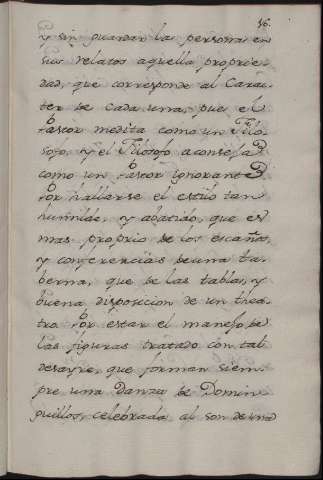 56.
y sin guardar las personas en
sus relatos aquella proprie-
dad, que corresponde al Carac-
ter de cada una, pues el
Pastor medita como un Filo-
sofo, y el Filosofo aconseja
como un Pastor ignorante
Por hallarse el estilo tan
humilde, y abatido, que es
mas proprio de los escaños,
y conferencias de una ta-
berna, que de las tablas, y
buena disposicion de un thea-
tro Por estar el manejo de
las figuras tratado con tal
desayre, que forman siem-
pre una Danza de Domin-
guillos, celebrada al son de una